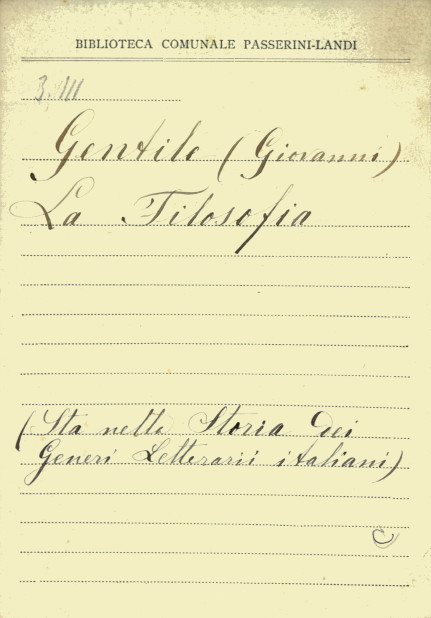 BIBLIOTECA COMUNALE PASSERINI-LANDI
3. III
Gentile (Giovanni)
La Filosofia
(Sta nella Storia dei
Generi Letterarii italiani)
C